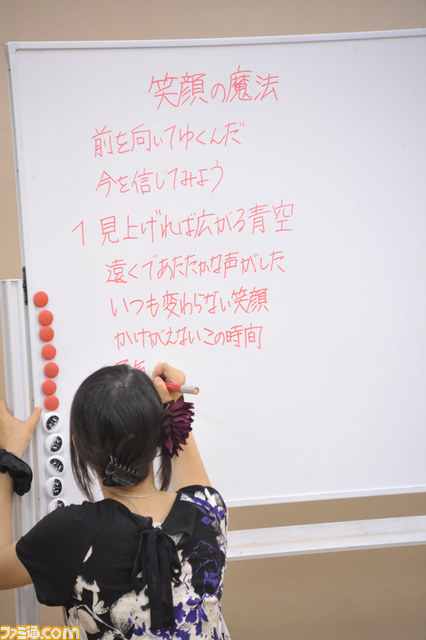 笑顔の魔法
前を向いてゆくんだ
今を信じてみよう
1 見上げれば広がる青空
遠くであたたかな声がした
いつも変わらない笑顔
かけがえないこの時間
ファミ通.com